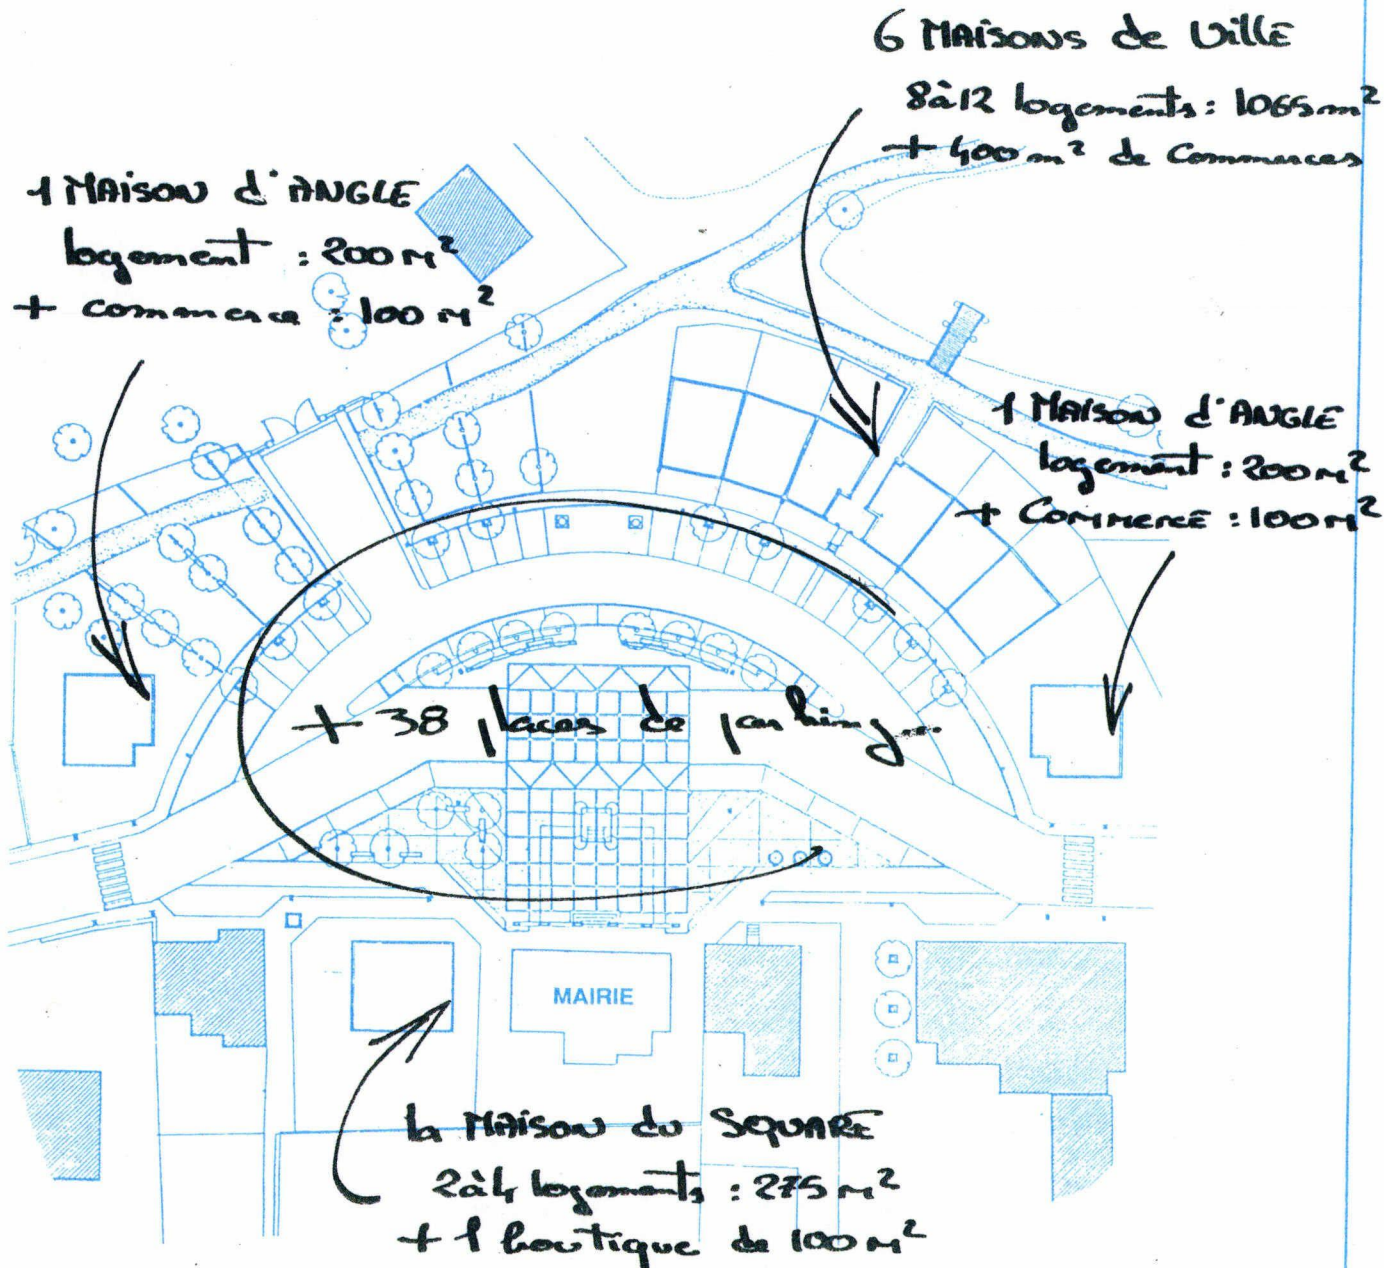 6 MAiSONS de VillE
8 à 12 logements : 1065 m²
+ 400 m² de Commerces
1 MAiSON d'ANGLE
logement : 200 m²
+ commerce : 100 m²
1 MAiSON d'ANGLE
logement : 200 m²
+ COMMERCE : 100 m²
+ 38 places de parking...
MAIRIE
la MAiSON du SQUARE
2 à 4 logements : 275 m²
+ 1 boutique de 100 m²